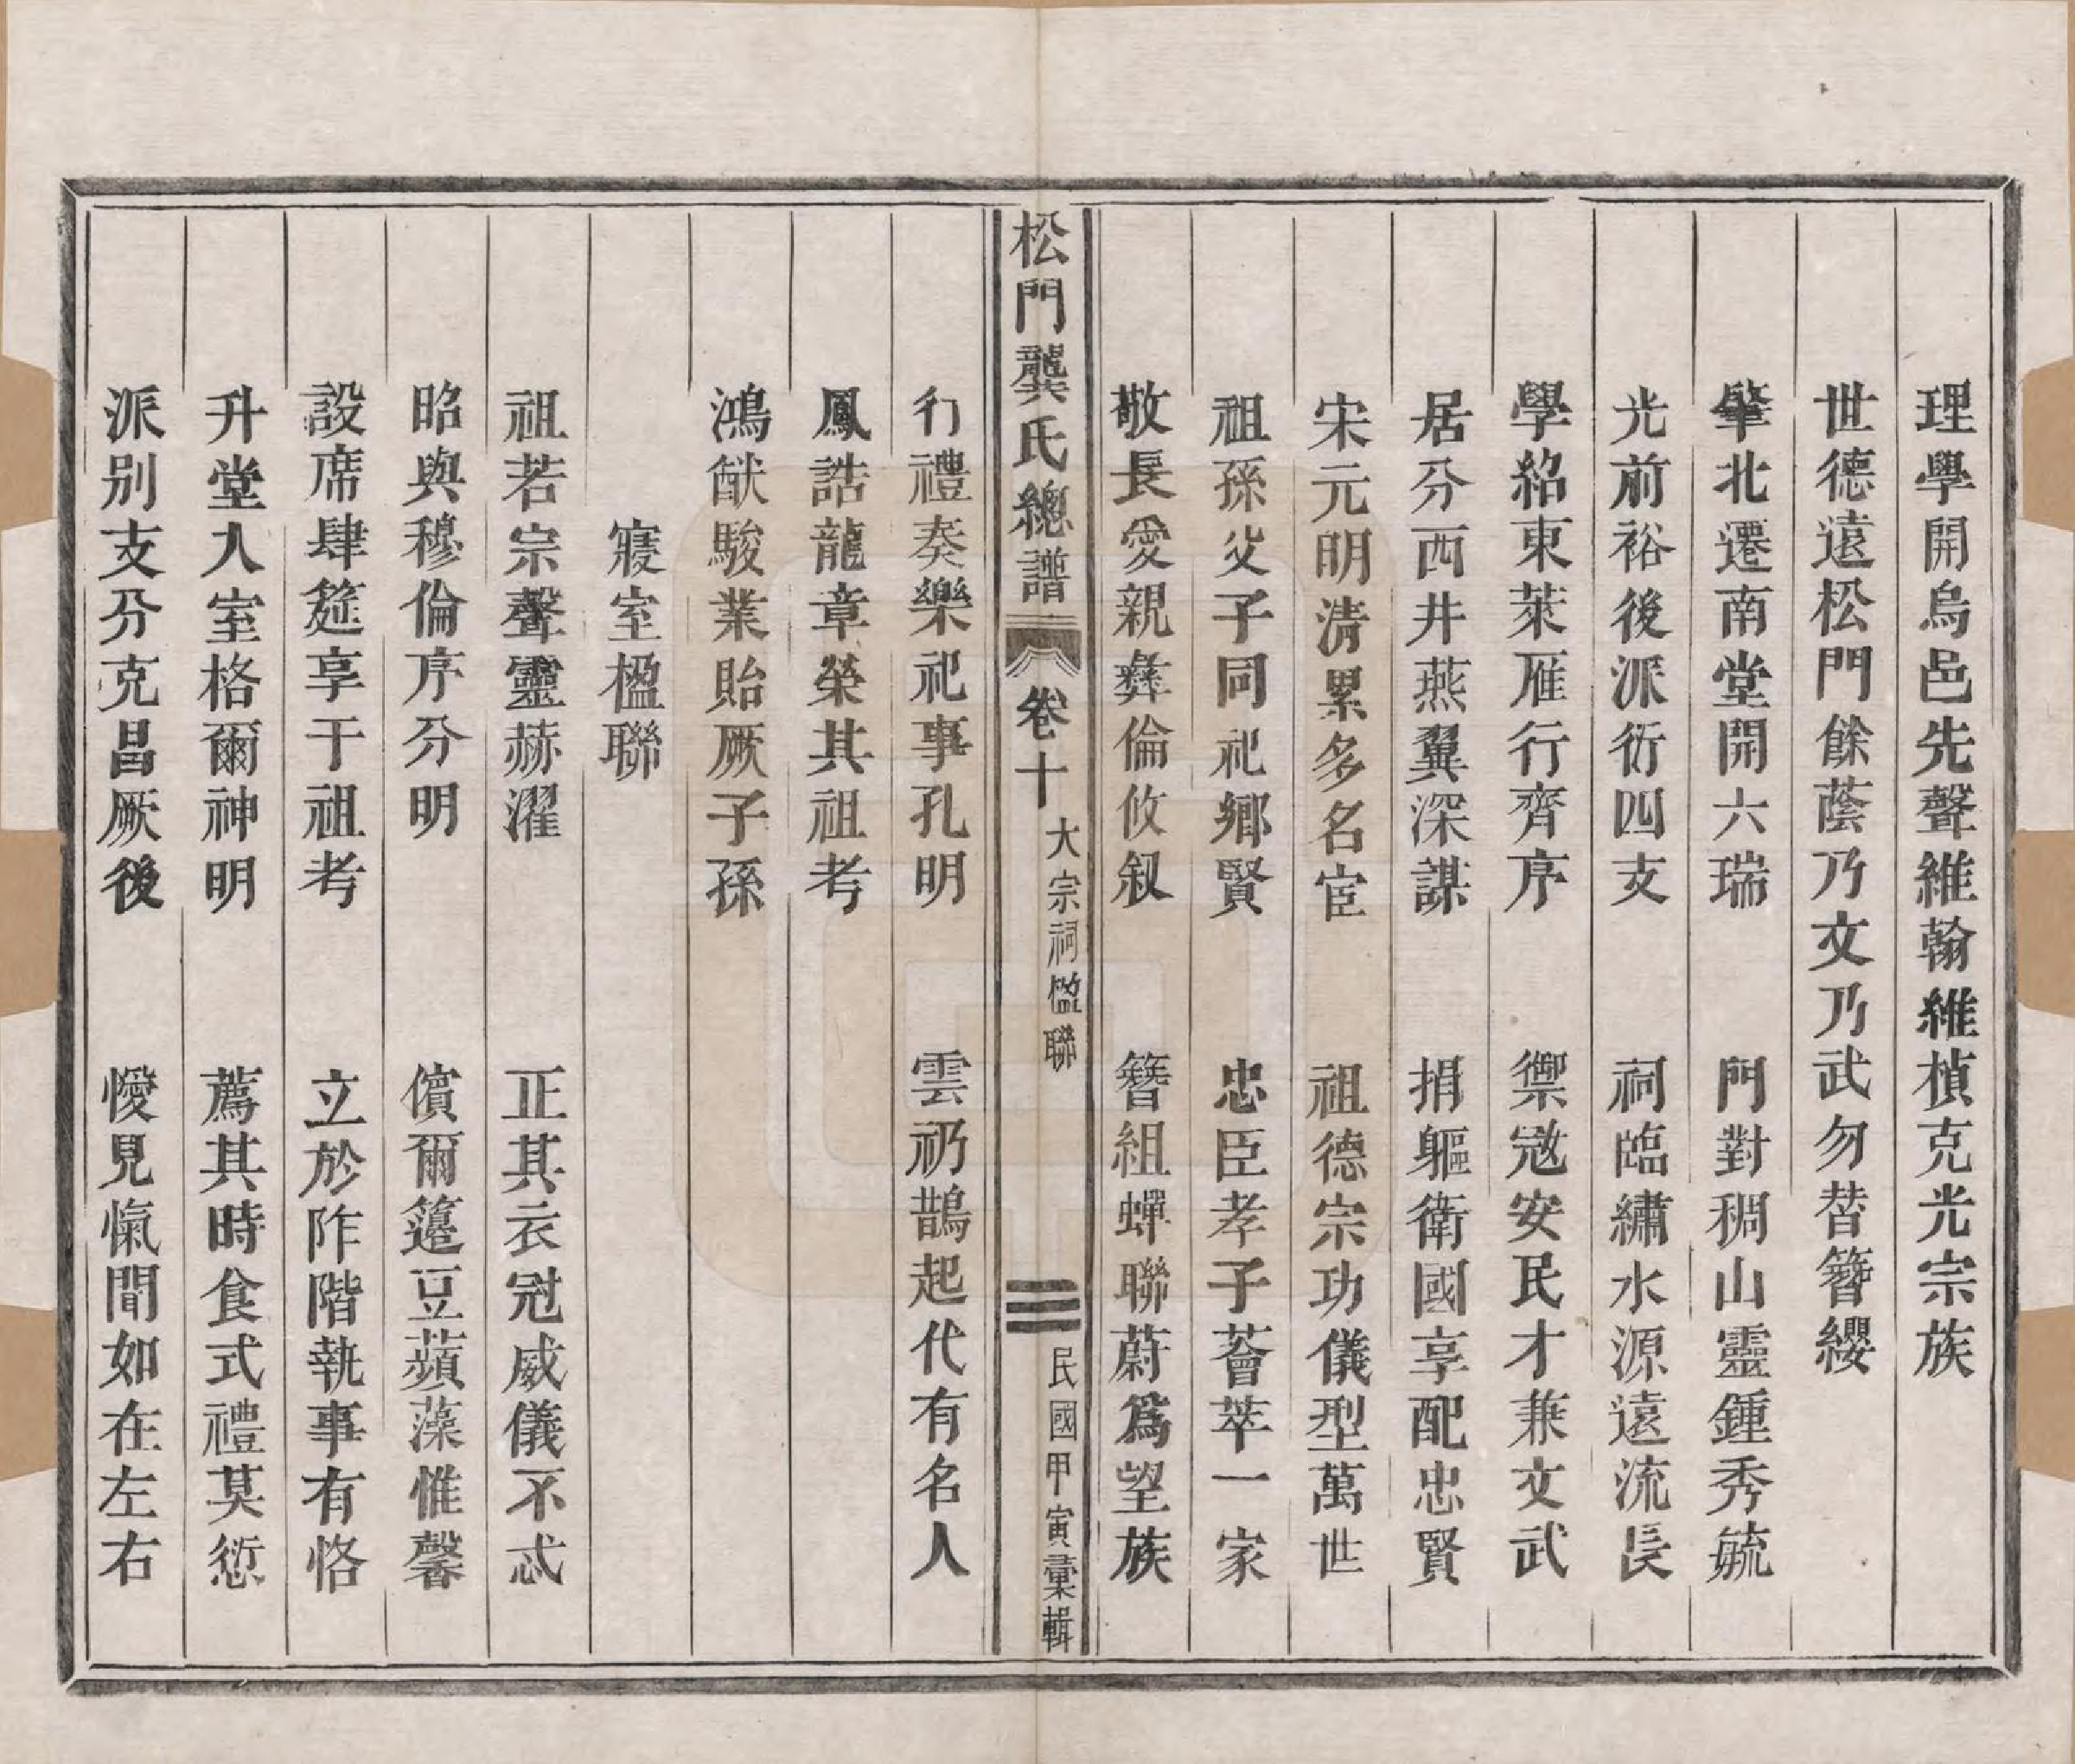 理學開烏邑先聲維翰維楨克光宗族
世德遠松門餘蔭乃文乃武勿替簪纓
肇北遷南堂開六瑞　門對稠山靈鍾秀毓
光前裕後派衍四支　祠臨繡水源遠流長
學紹東萊雁行齊序　禦寇安民才兼文武
居分西井燕翼深謀　捐軀衛國享配忠賢
宋元明清累多名宦　祖德宗功儀型萬世
祖孫父子同祀鄉賢　忠臣孝子薈萃一家
敬長愛親彝倫攸叙　簪組蟬聯蔚爲望族
松門龔氏總譜　卷十　大宗祠楹聯　三　民國甲寅彙輯
行禮奏樂祀事孔明　雲礽鵲起代有名人
鳳誥龍章榮其祖考
鴻猷駿業貽厥子孫
寢室楹聯
祖若宗聲靈赫濯　正其衣冠威儀不忒
昭與穆倫序分明　儐爾籩豆蘋藻惟馨
設席肆筵享于祖考　立於阼階執事有恪
升堂入室格爾神明　薦其時食式禮莫愆
派別支分克昌厥後　僾見愾聞如在左右